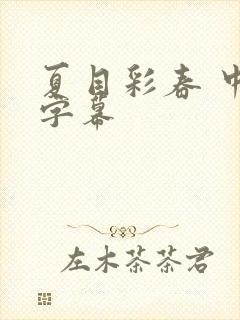 夏目彩春 中
字幕
左木茶茶君